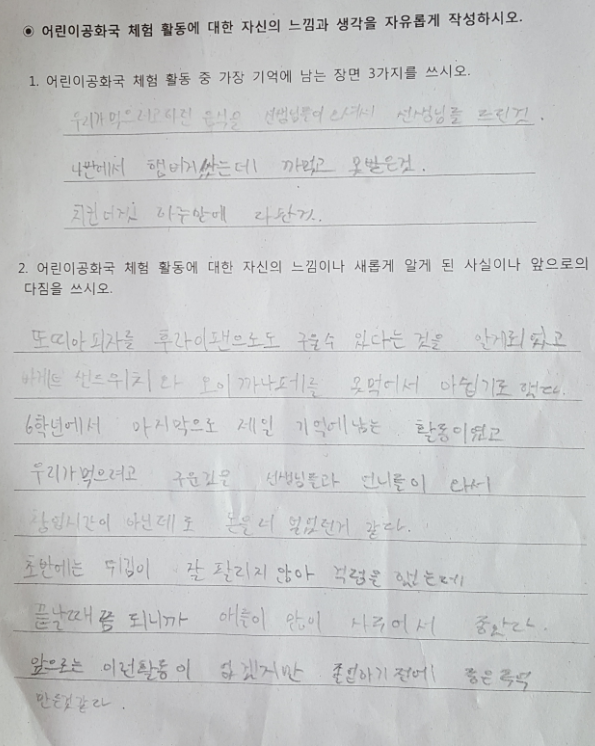 ◉ 어린이공화국 체험 활동에 대한 자신의 느낌과 생각을 자유롭게 작성하시오.
1. 어린이공화국 체험 활동 중 가장 기억에 남는 장면 3가지를 쓰시오.
우리가 먹으려고 구운 음식을 선생님들이 오셔서 선생님들 드린것.
4반에서 햄버거 샀는데 까먹고 못받은것.
치킨너겟 아주만에 다 판것..
2. 어린이공화국 체험 활동에 대한 자신의 느낌이나 새롭게 알게 된 사실이나 앞으로의
다짐을 쓰시오.
또띠아 피자를 후라이팬으로도 구울수 있다는 것을 알게되었고
바게트 샌드위치와 오이 까나페를 못먹어서 아쉽기도 했다.
6학년에서 마지막으로 제일 기억에남는 활동이였고
우리가먹으려고 구운것을 선생님들과 언니들이 와서
창업시간이 아닌데도 돈을 더 벌었던거 같다.
초반에는 튀김이 잘 팔리지 않아 걱정을 했는데
끝날때쯤 되니까 애들이 많이 사주어서 좋았다.
앞으로는 이런활동이 없겠지만 졸업하기 전에 좋은 추억
만든것같다.